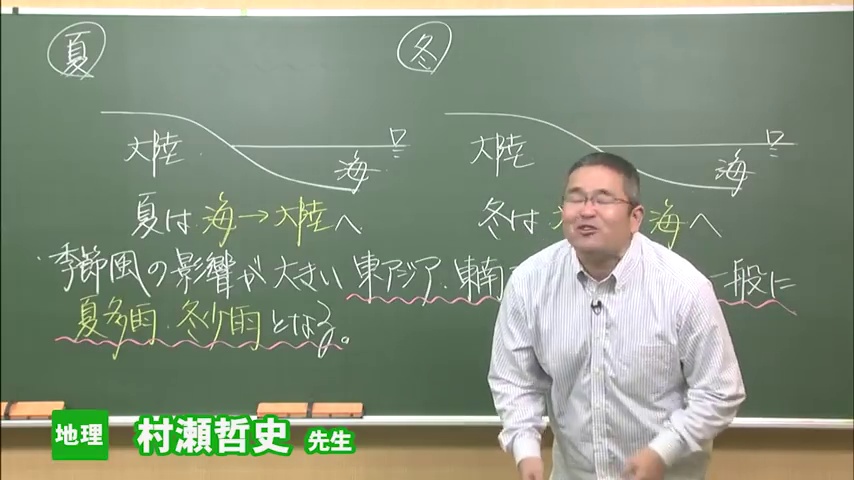 夏
冬
大陸
海
大陸
海
夏は 海→大陸へ
冬は 海へ
・季節風の影響が大きい 東アジア・東南
一般に
夏多雨・冬少雨となる。
地理 村瀬哲史 先生